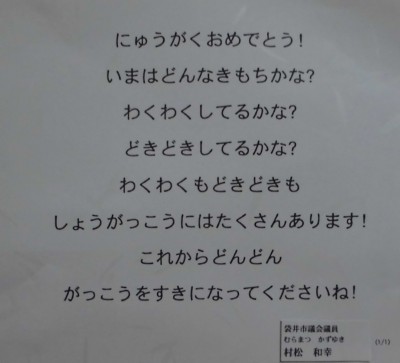 にゅうがくおめでとう!
いまはどんなきもちかな?
わくわくしてるかな?
どきどきしてるかな?
わくわくもどきどきも
しょうがっこうにはたくさんあります!
これからどんどん
がっこうをすきになってくださいね!
袋井市議会議員
むらまつ かずゆき
村松 和幸
(1/1)